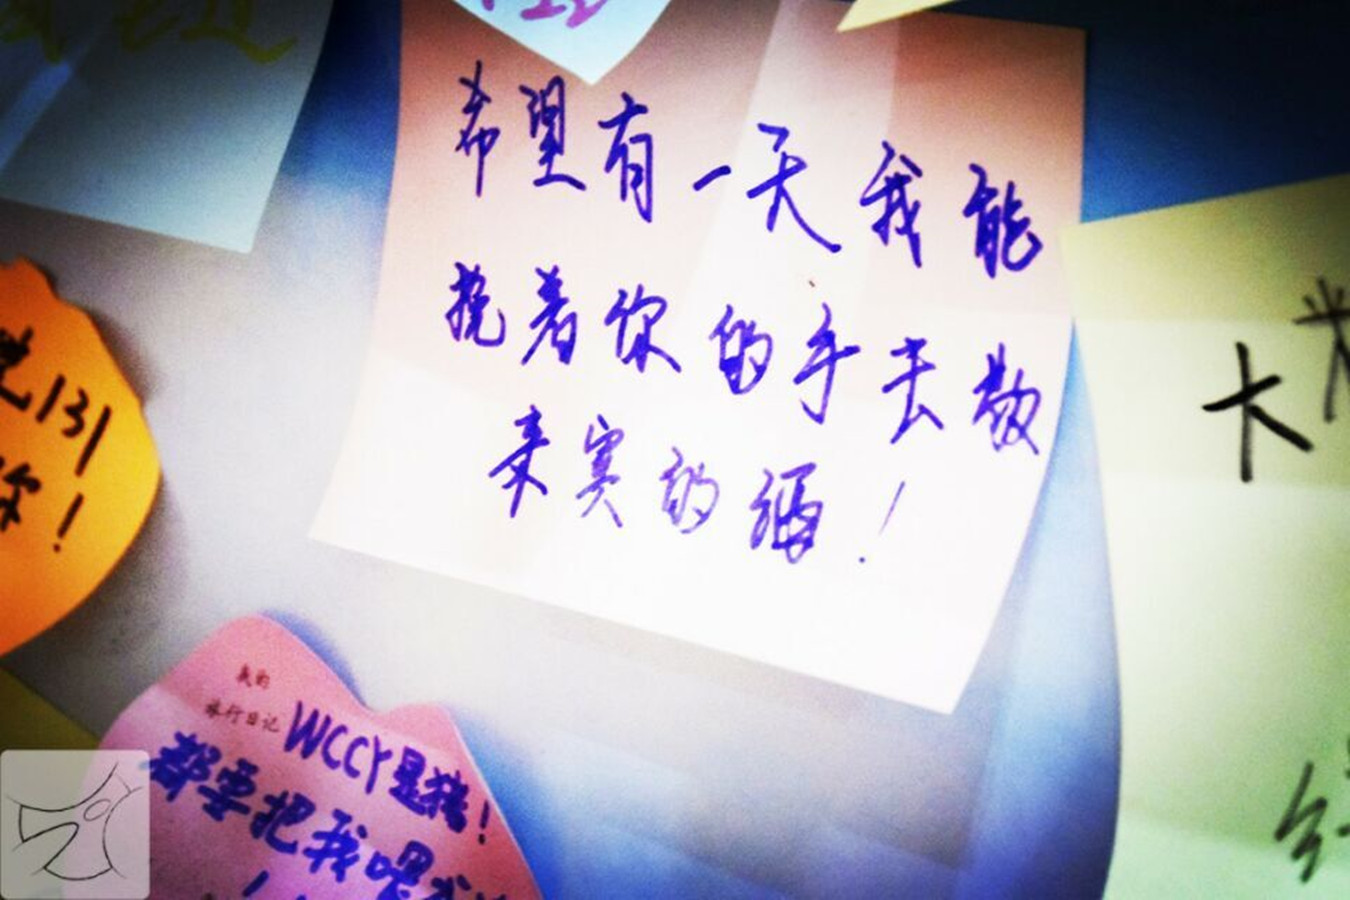 希望有一天我能
挽着你的手去数
来宾的酒！
131
你！
我的
旅行日记
WCCY是猪！
都要把我喂
大